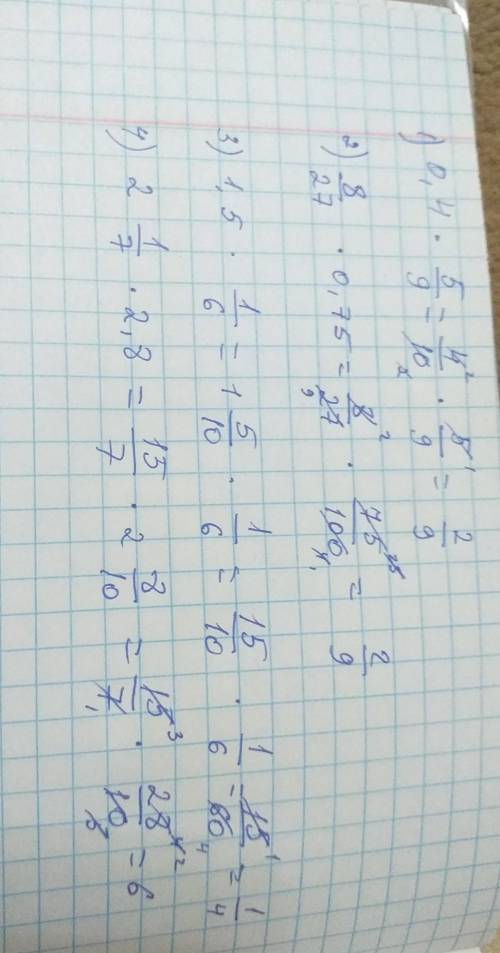 1) 0,4 · 5/9 = 4²/10₂ · 5¹/9 = 2/9
2) 8/27 · 0,75 = 8²/27₉ · 75²⁵/100₄₁ = 2/9
3) 1,5 · 1/6 = 1 5/10 · 1/6 = 15/10 · 1/6 = 15¹/60₄ = 1/4
4) 2 1/7 · 2,8 = 15/7 · 2 8/10 = 15³/7₁ · 28⁴²/10 = 6